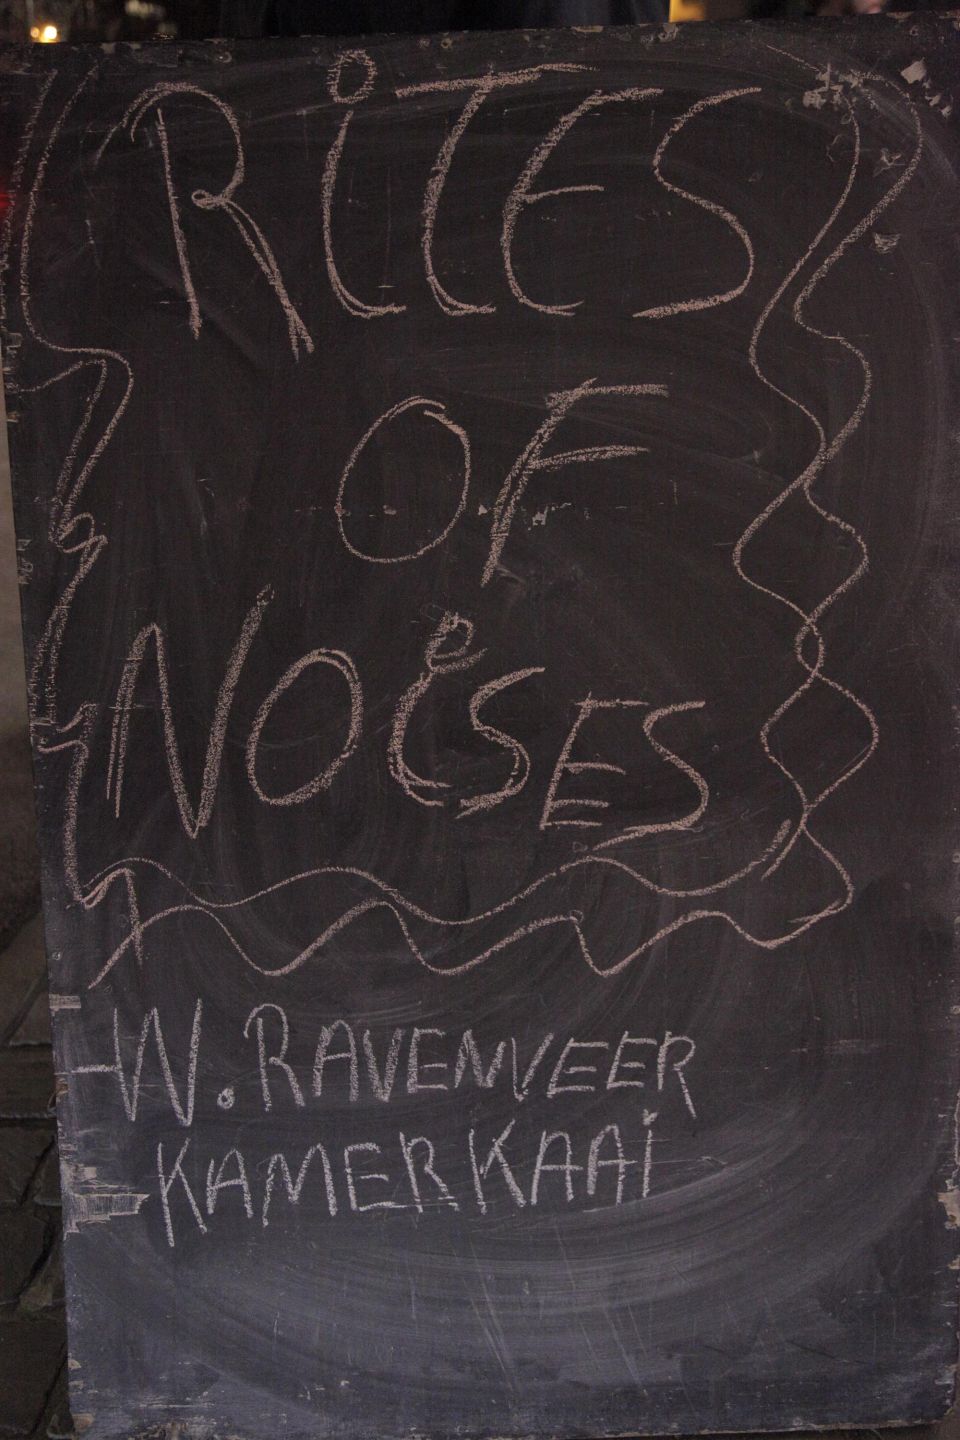 RiTES
OF
NOiSES
W. RAVENVEER
KAMERKAAi